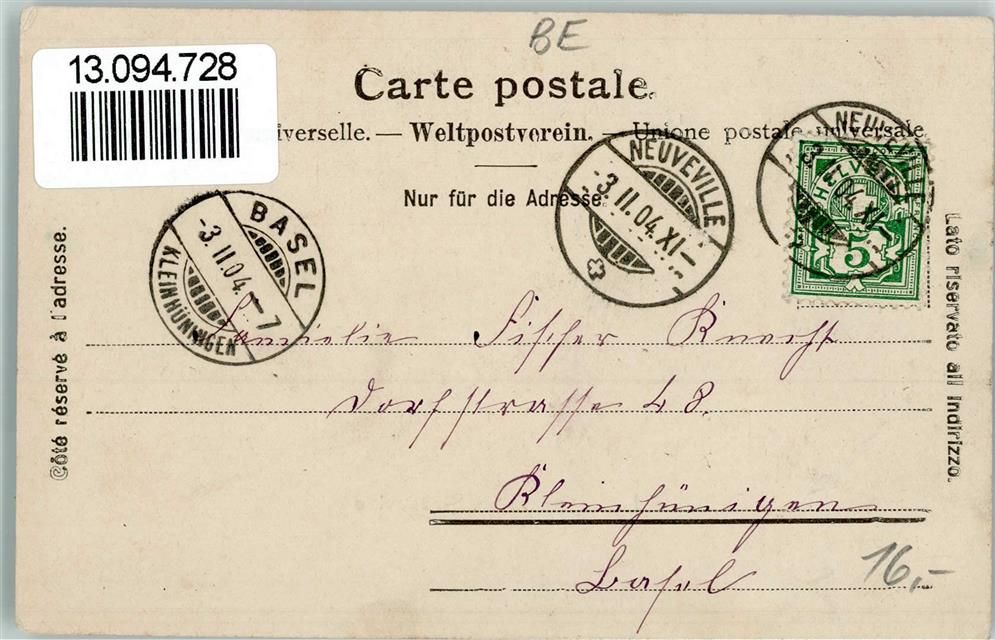 BE
13.094.728
Carte postale.
iverselle. — Weltpostverein. — Unione postale universale
Nur für die Adresse.
NEUVEVILLE
-3.II.04.XI-
NEUVEVILLE
-3. 04.XI-
HELVETIA
5
BASEL
-3.II.04.-7
KLEINHÜNINGEN
Côté réservé à l'adresse.
Lato riservato all indirizzo.
Familie Fischer Knecht
Dorfstrasse 48.
Kleinhünigen
Basel
16,-